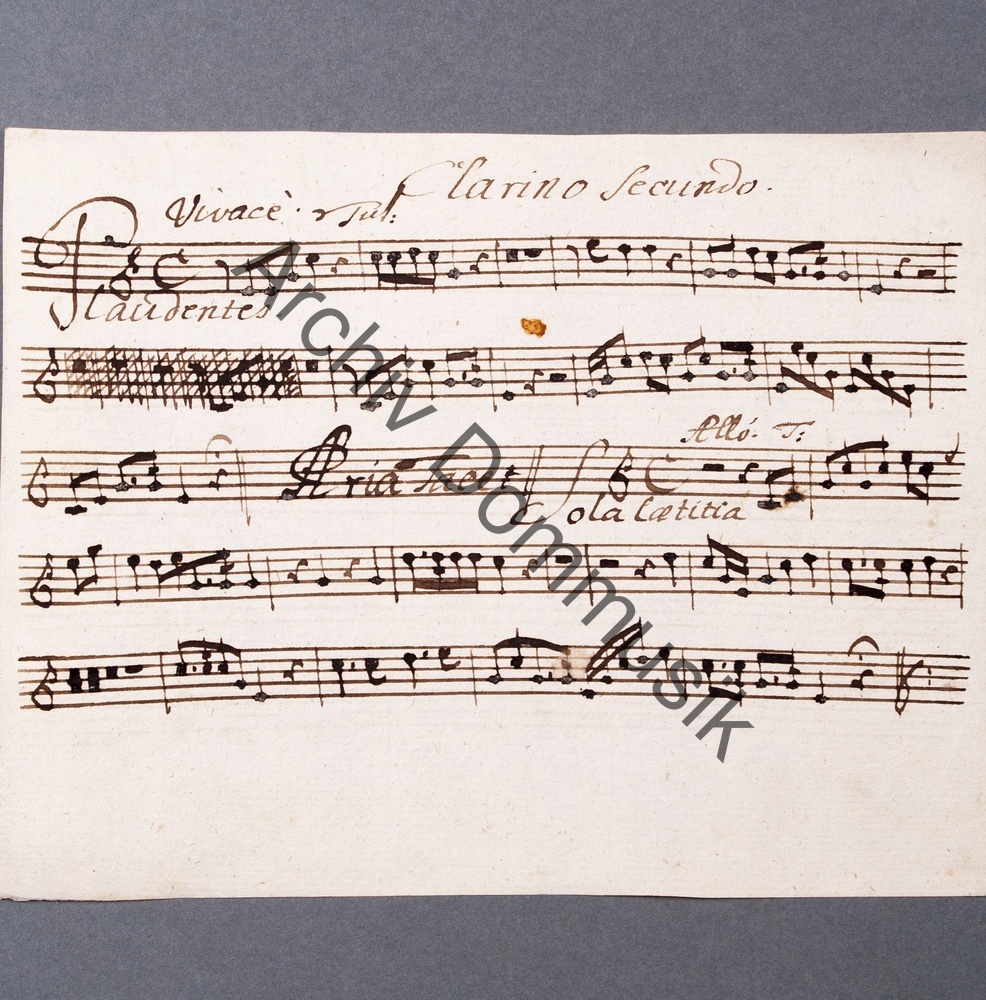 Clarino Secundo.
Vivacè.
Plaudentes
Aria tacet
Allo: T:
Sola Lætitia
Archiv Dommusik